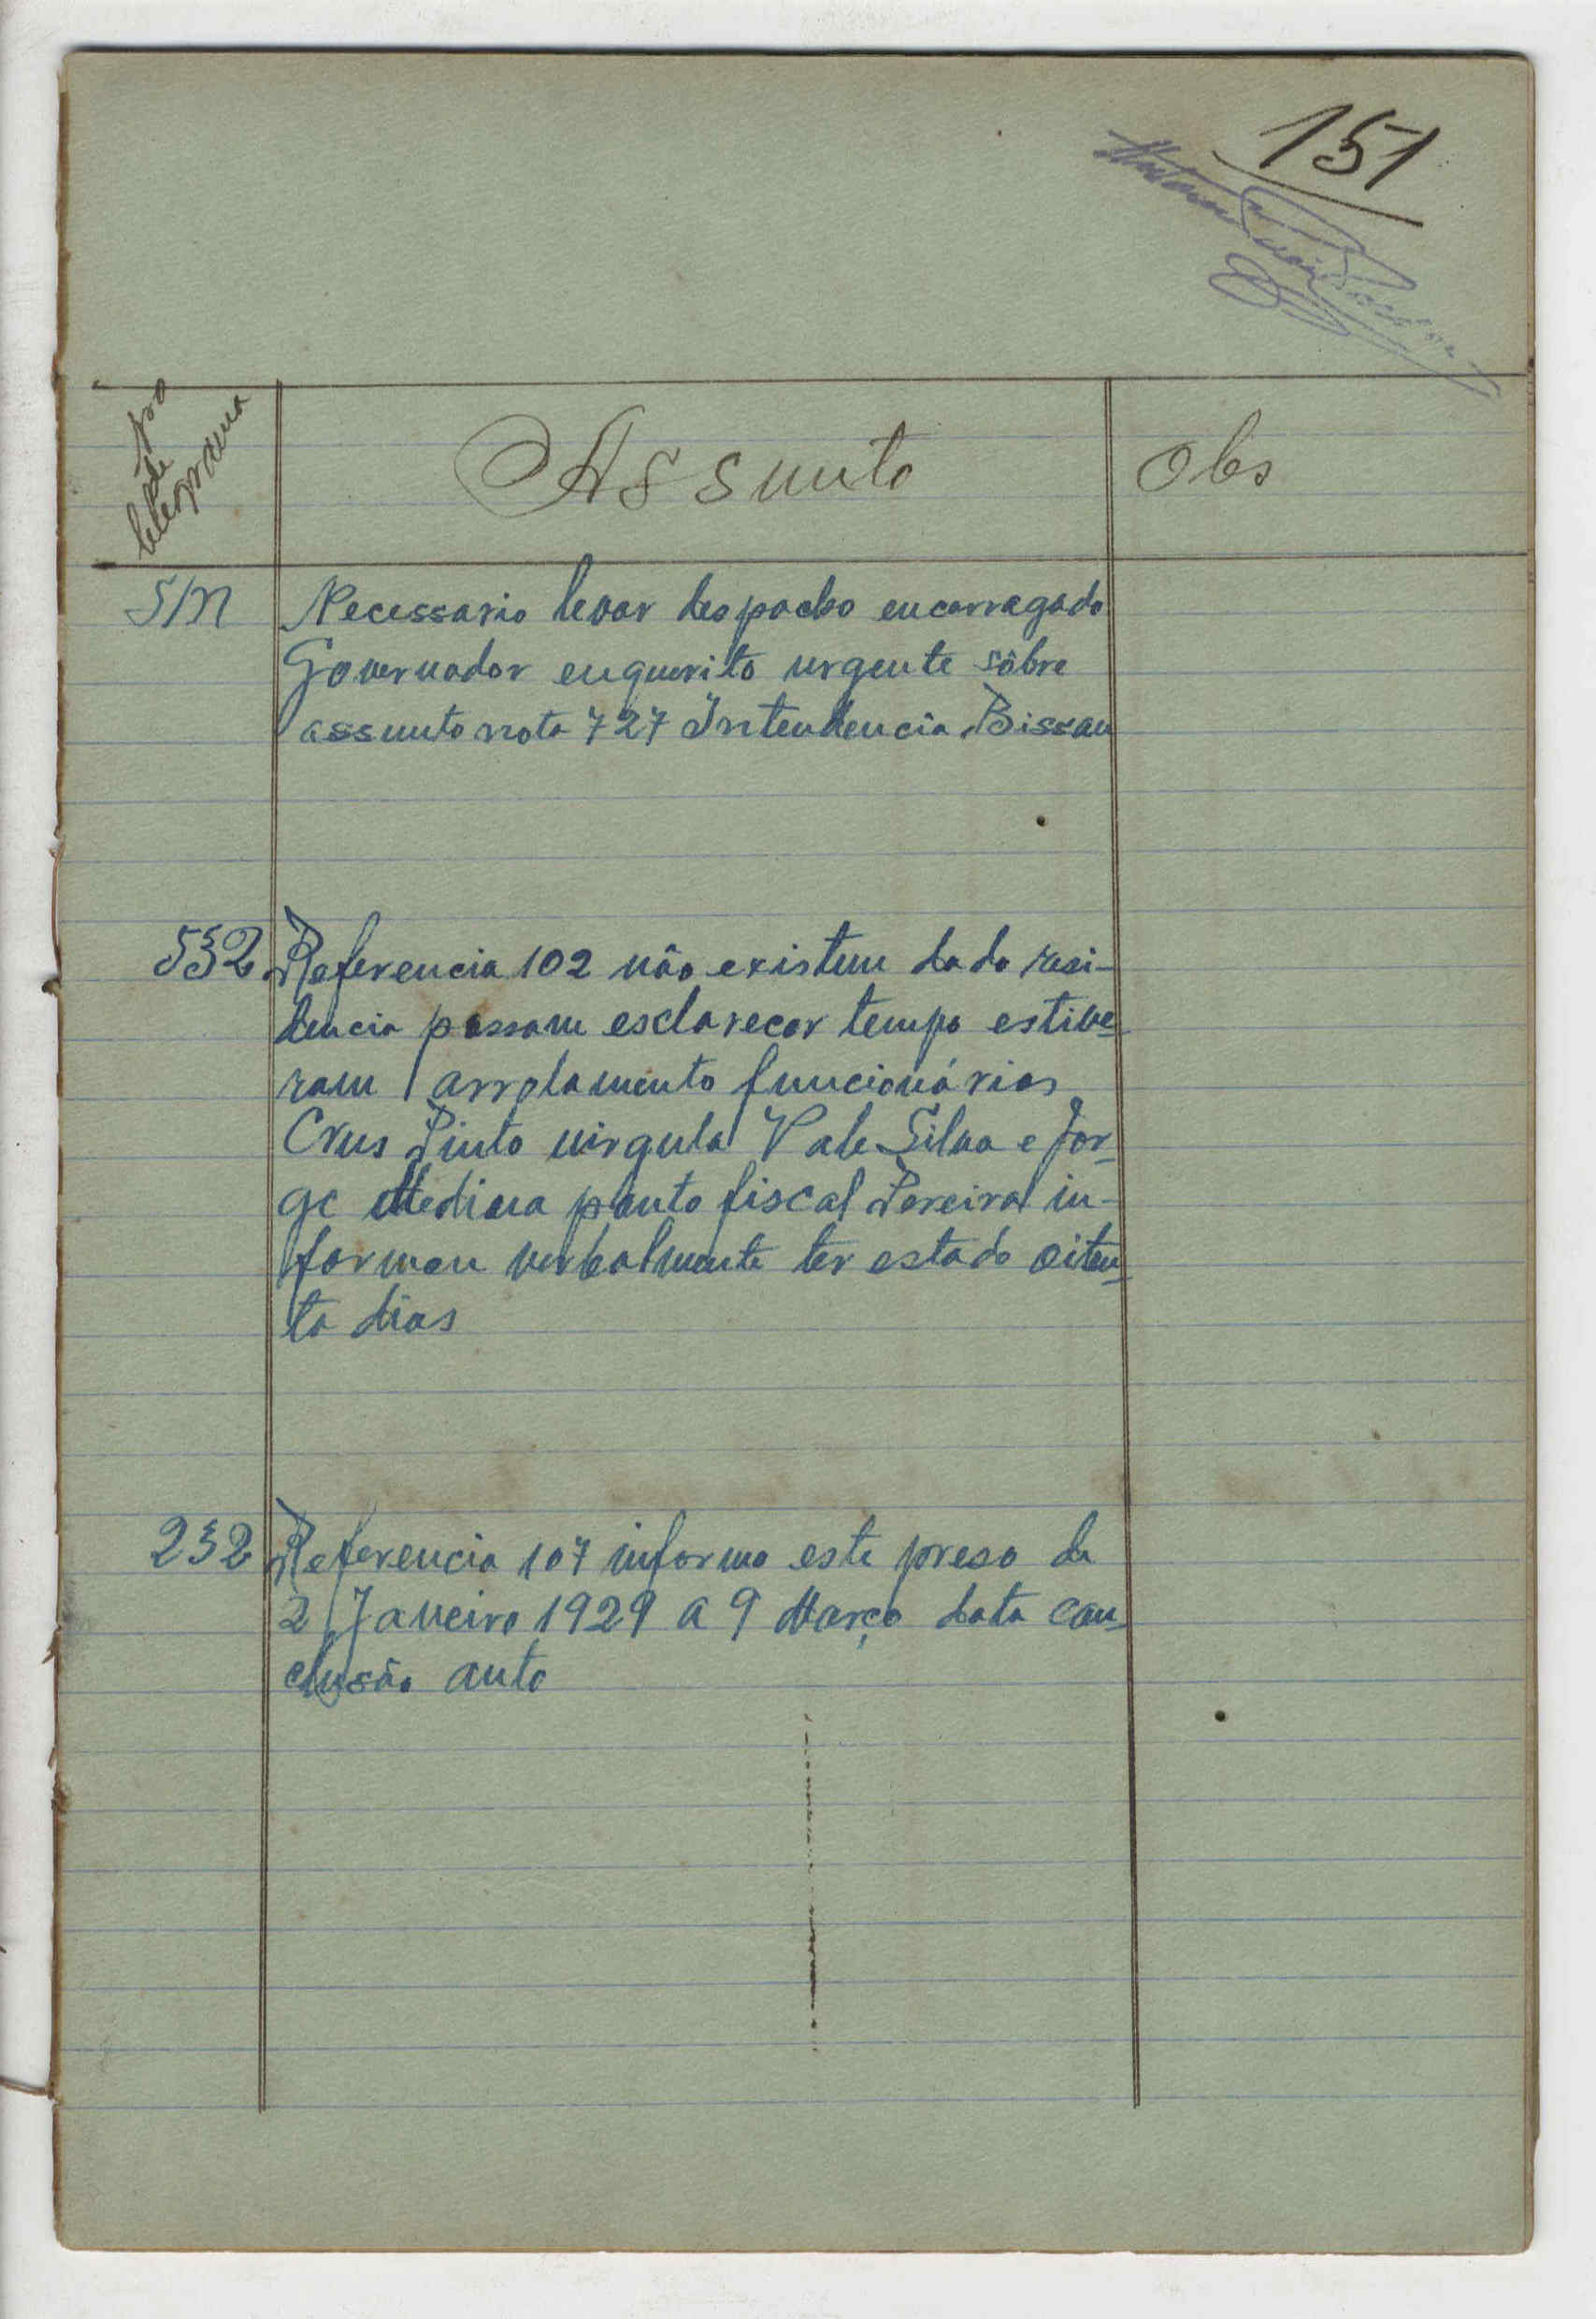 151
de
telegrama
Assunto
Obs
S/N
Necessario levar despacho encarregado
Governador enquerito urgente sôbre
assunto nota 727 Intendencia Bissau
532
Referencia 102 não existem dado resi-
dencia possam esclarecer tempo estive-
ram arrolamento funcionários
Crus Pinto virgula Vale Silva e Jor-
ge Medina ponto fiscal Pereira in-
formou verbalmente ter estado oiten-
ta dias
232
Referencia 107 informo este preso de
2 Janeiro 1929 a 9 Março data con-
clusão auto